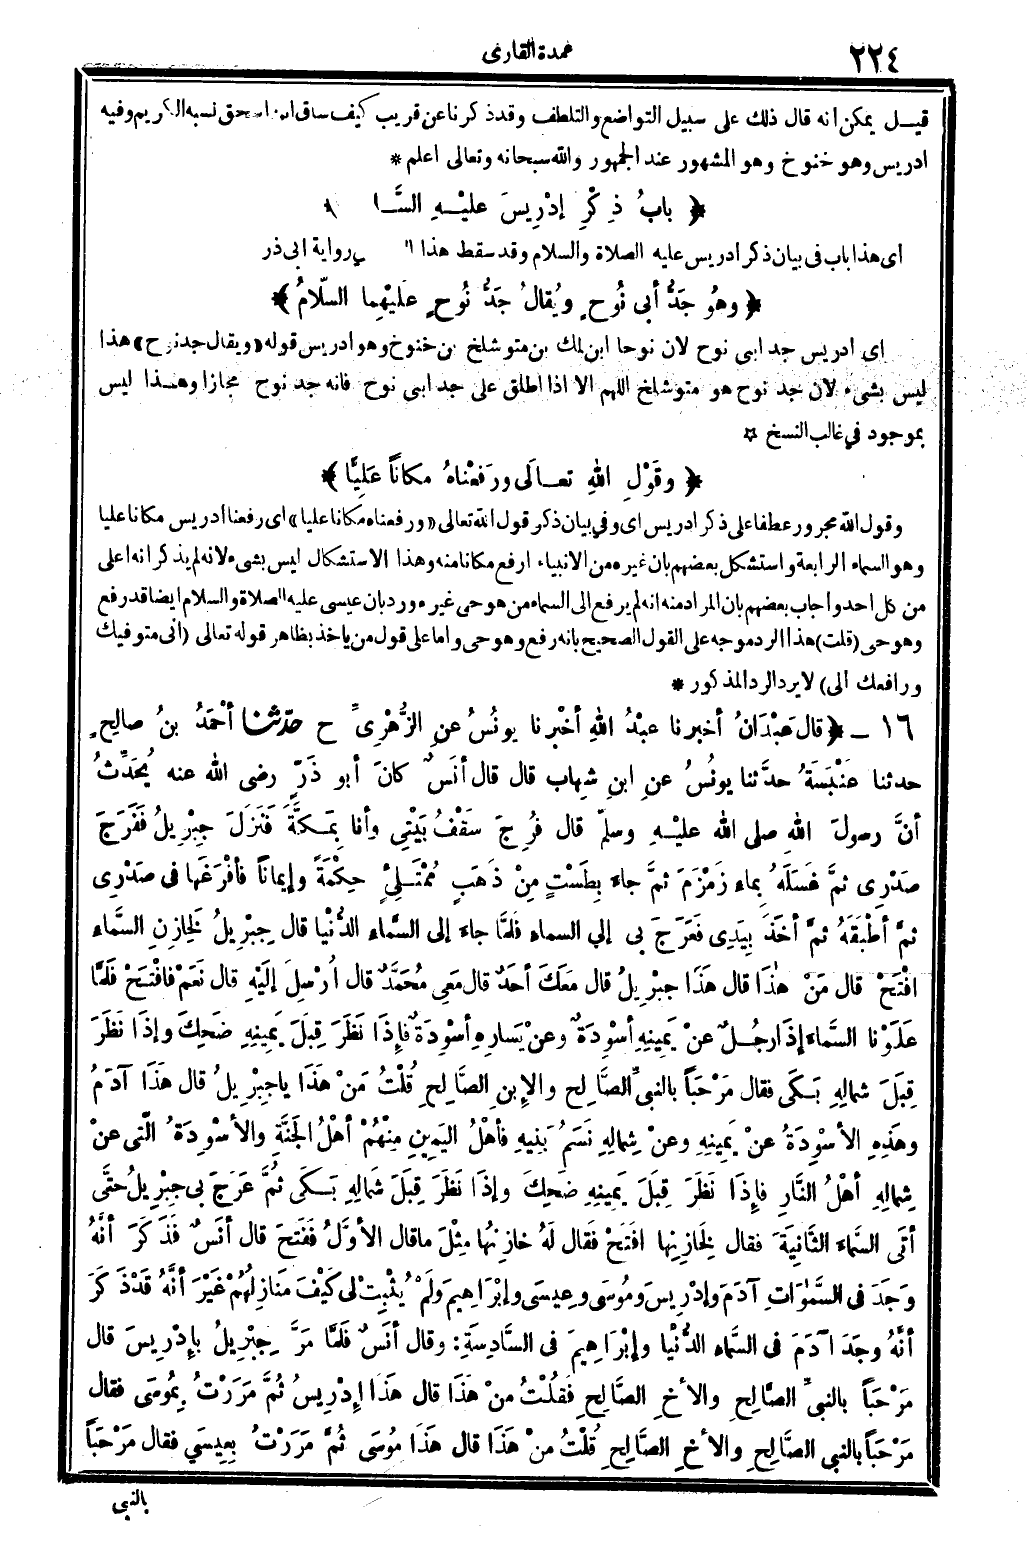 ٢٢٤
عمدة القارى
قيــل يمكن انه قال ذلك على سبيل التواضع والتلطف وقد ذكرنا عن قريب كيف ساق ابن اسحق نسبه الكريم وفيه
ادريس وهو خنوخ وهو المشهور عند الجمهور والله سبحانه وتعالى اعلم *
﴿ بابُ ذِكْرِ إدْرِيسَ عليْــهِ السَّــلا
اى هذا باب فى بيان ذكر ادريس عليه الصلاة والسلام وقد سقط هذا في رواية ابى ذر
﴿ وهُو جَدُّ أبى نُوحٍ ويُقالُ جَدُّ نُوحٍ عليْهِما السّلامُ ﴾
اى ادريس جد ابى نوح لان نوحا ابن لمك بن متوشلخ بن خنوخ وهو ادريس قوله «ويقال جد نوح» هذا
ليس بشىء لان جد نوح هو متوشلخ اللهم الا اذا اطلق على جد ابى نوح فانه جد نوح مجازا وهــذا ليس
بموجود في غالب النسخ ✡
﴿ وقَوْلِ اللهِ تعــالَى ورَفَعْناهُ مكاناً عَلِيًّا ﴾
وقول الله مجرور عطفا على ذكر ادريس اى وفي بيان ذكر قول الله تعالى «ورفعناه مكانا عليا» اى رفعنا ادريس مكانا عليا
وهو السماء الرابعة واستشكل بعضهم بان غيره من الانبياء ارفع مكانا منه وهذا الاستشكال ليس بشىء لانه لم يذكر انه اعلى
من كل احد واجاب بعضهم بان المراد منه انه لم يرفع الى السماء من هو حى غيره ورد بان عيسى عليه الصلاة والسلام ايضا قد رفع
وهو حى (قلت) هذا الرد موجه على القول الصحيح بانه رفع وهو حى واما على قول من ياخذ بظاهر قوله تعالى (انى متوفيك
ورافعك الى) لا يرد الرد المذكور *
١٦ ــ ﴿ قال عَبْدَانُ أخبرنا عبْدُ اللهِ أخْبرنا يونُسُ عنِ الزُّهْرِىِّ ح حدّثنا أحْمَدُ بنُ صالِحٍ
حدثنا عَنْبَسَةُ حدَّثنا يونُسُ عنِ ابنِ شِهابٍ قال قال أنَسٌ كانَ أبو ذَرٍّ رضى الله عنه يُحَدِّثُ
أنَّ رسولَ اللهِ صلى الله عليْــهِ وسلّم قال فُرِجَ سَقْفُ بَيْتِى وأنا بِمَــكَّةَ فَنَزَلَ جِبْرِيلُ فَفَرَجَ
صَدْرِى ثمَّ غسَلَهُ بِماءِ زَمْزَمَ ثمَّ جاءَ بِطَسْتٍ مِنْ ذَهَبٍ مُمْتَــلِئٍ حِكْمَةً وإيماناً فأفْرَغَها فى صَدْرِى
ثمَّ أطْبَقَهُ ثمَّ أخَذَ بِيَدِى فعَرَجَ بِى إلى السماءِ فَلمَّا جاءَ إلى السَّماءِ الدُّنْيا قال جِبْرِيلُ لِخازِنِ السَّماءِ
افْتَحْ قال مَنْ هٰذَا قال هَذَا جِبْرِيلُ قال مَعَكَ أحَدٌ قال مَعِى مُحَمَّدٌ قال أُرْسِلَ إليْهِ قال نَعَمْ فافْتَحْ فَلمَّا
عَلَوْنا السَّماءَ إذَا رجُــلٌ عنْ يَمِينِهِ أسْوِدَةٌ وعنْ يَسارِهِ أسْوِدَةٌ فإِذَا نَظَرَ قِبَلَ يَمِينِهِ ضَحِكَ وإذَا نَظَرَ
قِبَلَ شِمالِهِ بَــكَى فقال مَرْحَباً بالنبىِّ الصَّالِحِ والاِبنِ الصَّالِحِ قُلْتُ مَنْ هَذَا ياجِبْرِيلُ قال هَذَا آدَمُ
وهَذِهِ الأسْوِدَةُ عنْ يَمِينِهِ وعنْ شِمالِهِ نَسَمُ بَنِيهِ فأهْلُ اليَمِينِ مِنْهُمْ أهْلُ الجَنَّةِ والأسْوِدَةُ الَّتى عنْ
شِمالِهِ أهْلُ النَّارِ فإِذَا نَظَرَ قِبَلَ يَمِينِهِ ضَحِكَ وإذَا نَظَرَ قِبَلَ شِمالِهِ بَــكَى ثُمَّ عَرَجَ بِى جِبْرِيلُ حتَّى
أتَى السَّماءَ الثَّانِيَةَ فقال لِخازِنِها افْتَحْ فقال لَهُ خازِنُها مِثْلَ ما قال الأوَّلُ ففَتَحَ قال أنَسٌ فَذَكَرَ أنَّهُ
وجَدَ فى السَّمٰوَاتِ آدَمَ وإدْرِيسَ ومُوسَى وعِيسَى وإبْرَاهِيمَ ولَمْ يُثْبِتْ لِى كَيْفَ مَنازِلُهُمْ غَيْرَ أنَّهُ قَدْ ذَكَرَ
أنَّهُ وجَدَ آدَمَ فى السَّماءِ الدُّنْيا وإبْرَاهِيمَ فى السَّادِسَةِ: وقال أنَسٌ فَلمَّا مَرَّ جِبْرِيلُ بِإِدْرِيسَ قال
مَرْحَباً بالنبىِّ الصَّالِحِ والأخِ الصَّالِحِ فَقُلْتُ مَنْ هَذَا قال هَذَا إدْرِيسُ ثُمَّ مَرَرْتُ بِمُوسَى فقال
مَرْحَباً بالنبى الصَّالِحِ والأخِ الصَّالِحِ قُلْتُ مَنْ هَذَا قال هَذَا مُوسَى ثُمَّ مَرَرْتُ بِعِيسَى فقال مَرْحَباً
بالنبى